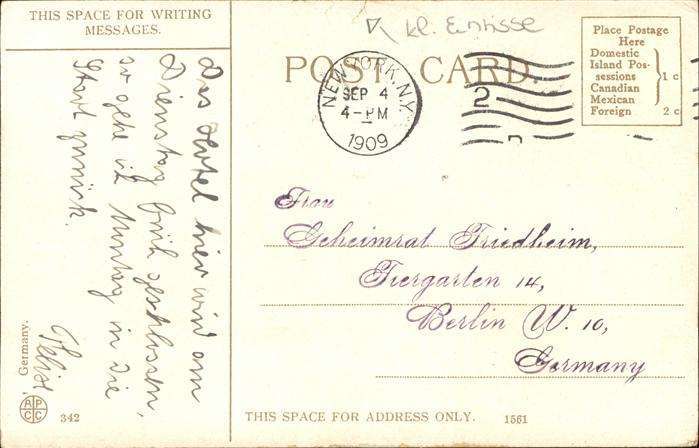 THIS SPACE FOR WRITING
MESSAGES.
Das Hotel hier wird am
Dienstag früh geschlossen,
so gehe ich Montag in die
Stadt zurück.
Germany.
A P C C
342
kl. Einrisse
POST CARD.
NEW YORK, N.Y.
SEP 4
4-PM
1909
2
Place Postage
Here
Domestic
Island Pos-
sessions
Canadian
Mexican
1 c
Foreign 2 c
Frau
Geheimrat Friedheim,
Tiergarten 14,
Berlin W. 10,
Germany
THIS SPACE FOR ADDRESS ONLY.
1561